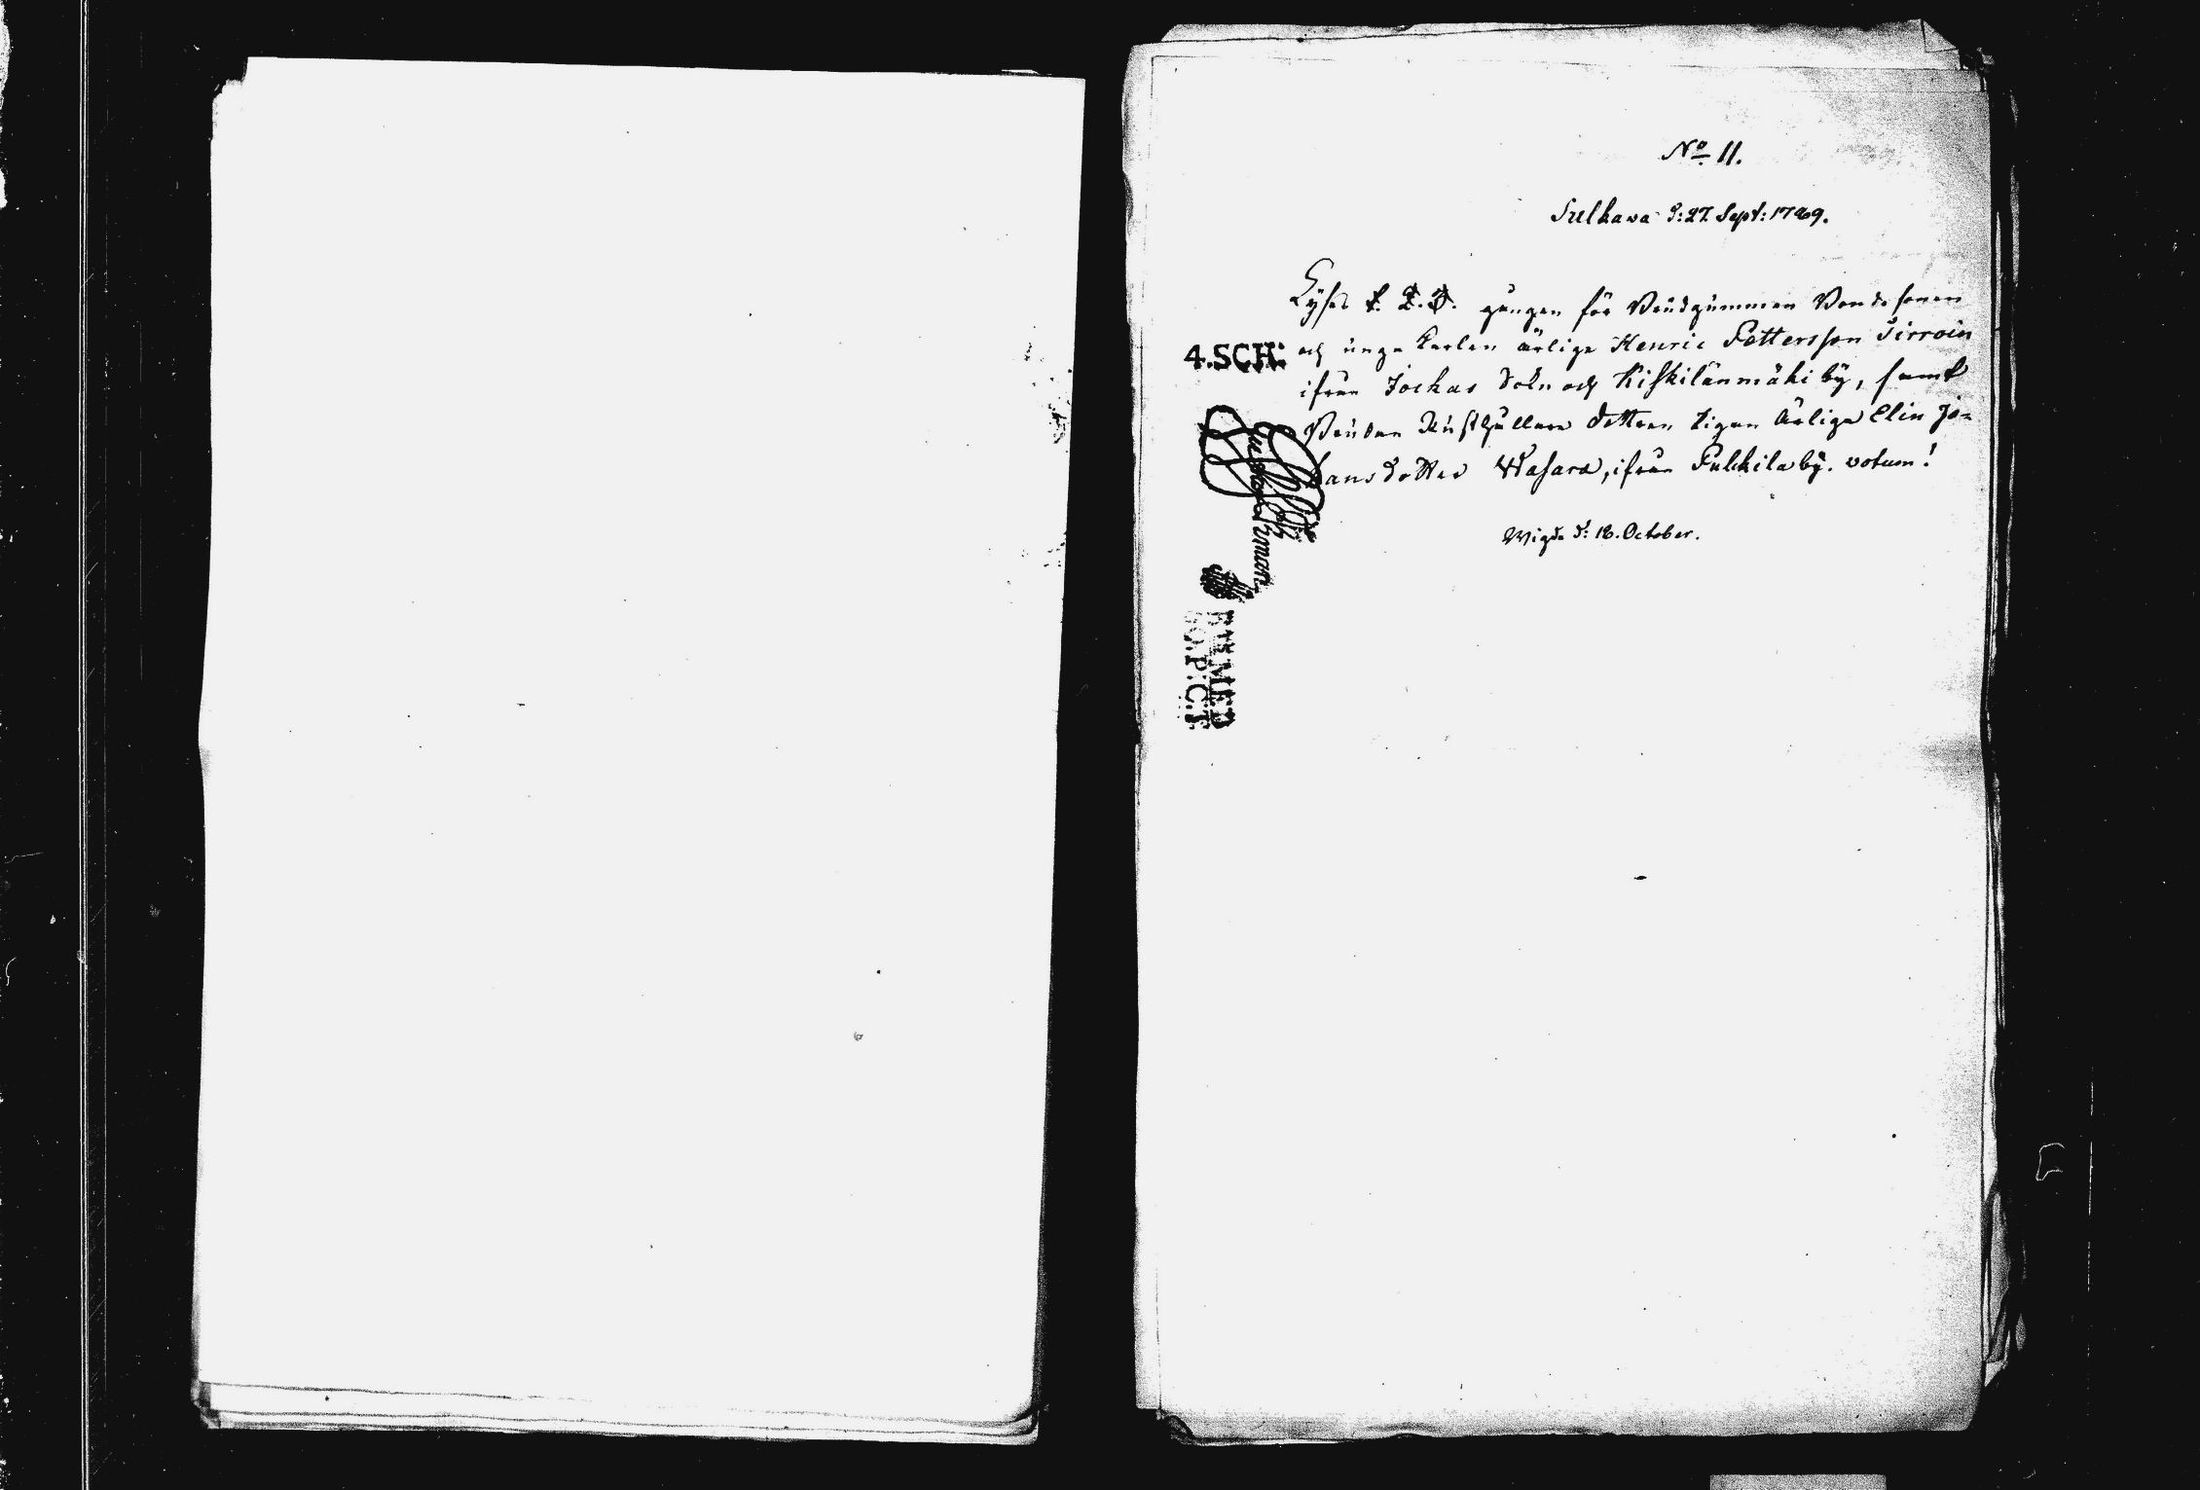 No 11.
Sulkava d: 27. Sept: 1789.
Lyses 1. 2. 3. gången för Brudgummen Bonde sonen
4.SCH:
och unga Karlen ärlige Henric Pettersson Tirroin
ifrån Jockas Sokn och Kiskilänmäki bÿ, samt
Bruden Rusthållare dottren Pigan Ärliga Elin Jo=
hansdotter Wasara, ifrån Pulkila bÿ. votum!
Wigde d: 18. October.